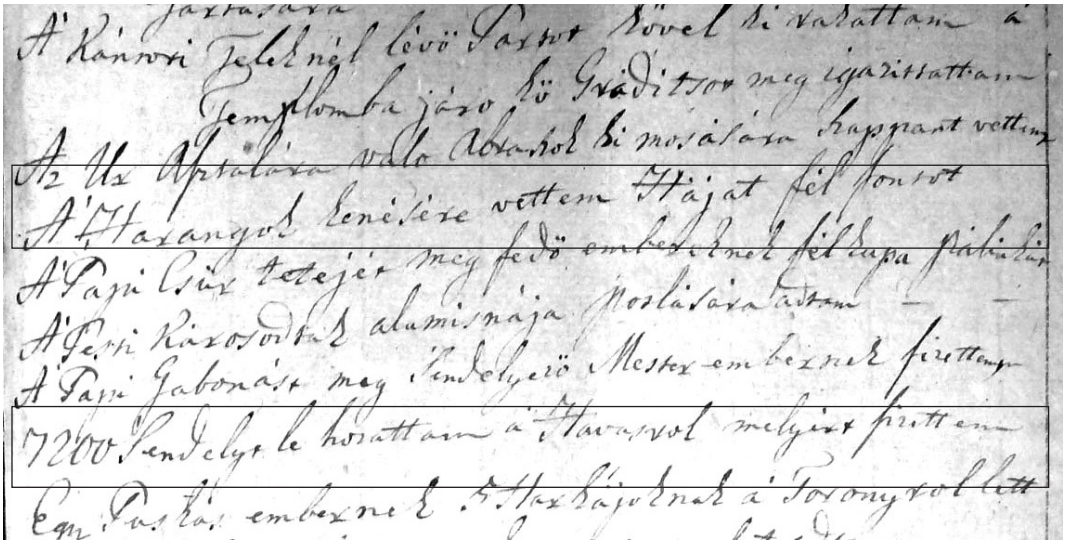 jártására
A' Kántori Teleknél lévö Partot Kövel ki rakattam a
Templomba járo kö Gráditsot meg igazittattam
Az Ur Asztalára valo Abraszok ki mosására Szappant vettem
A' Harangok kenésére vettem Hájat fél fontot
A' Papi Csür tetejét meg fedö embereknek fél kupa pálinkát
A' Pesti Károsodtak alamisnája postására adtam — —
A' Papi Gabonást meg Sendelyezö Mester embernek fizettem
7200 Sendelyt le hozattam a' Havasrol melyért fizettem
Egy Puskás embernek 5 Harkájoknak a' Toronyrol lett